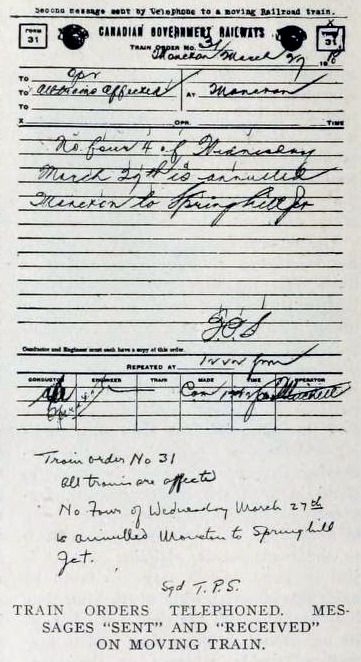 Second message sent by Telephone to a moving Railroad train.
FORM 31
CANADIAN GOVERNMENT RAILWAYS
FORM 31
TRAIN ORDER No. 31
Moncton March 27 191
TO Opr
TO All trains affected AT Moncton
TO
X OPR. TIME
No. four 4 of Wednesday
March 27th is annulled
Moncton to Springhill Jct
Conductor and Engineer must each have a copy of this order.
REPEATED AT
CONDUCTOR ENGINEER TRAIN MADE TIME OPERATOR
Com
Train order No 31
all trains are affected
No Four of Wednesday March 27th
is annulled Moncton to Springhill
Jct.
Sgd T.P.S.
TRAIN ORDERS TELEPHONED. MES-
SAGES "SENT" AND "RECEIVED"
ON MOVING TRAIN.